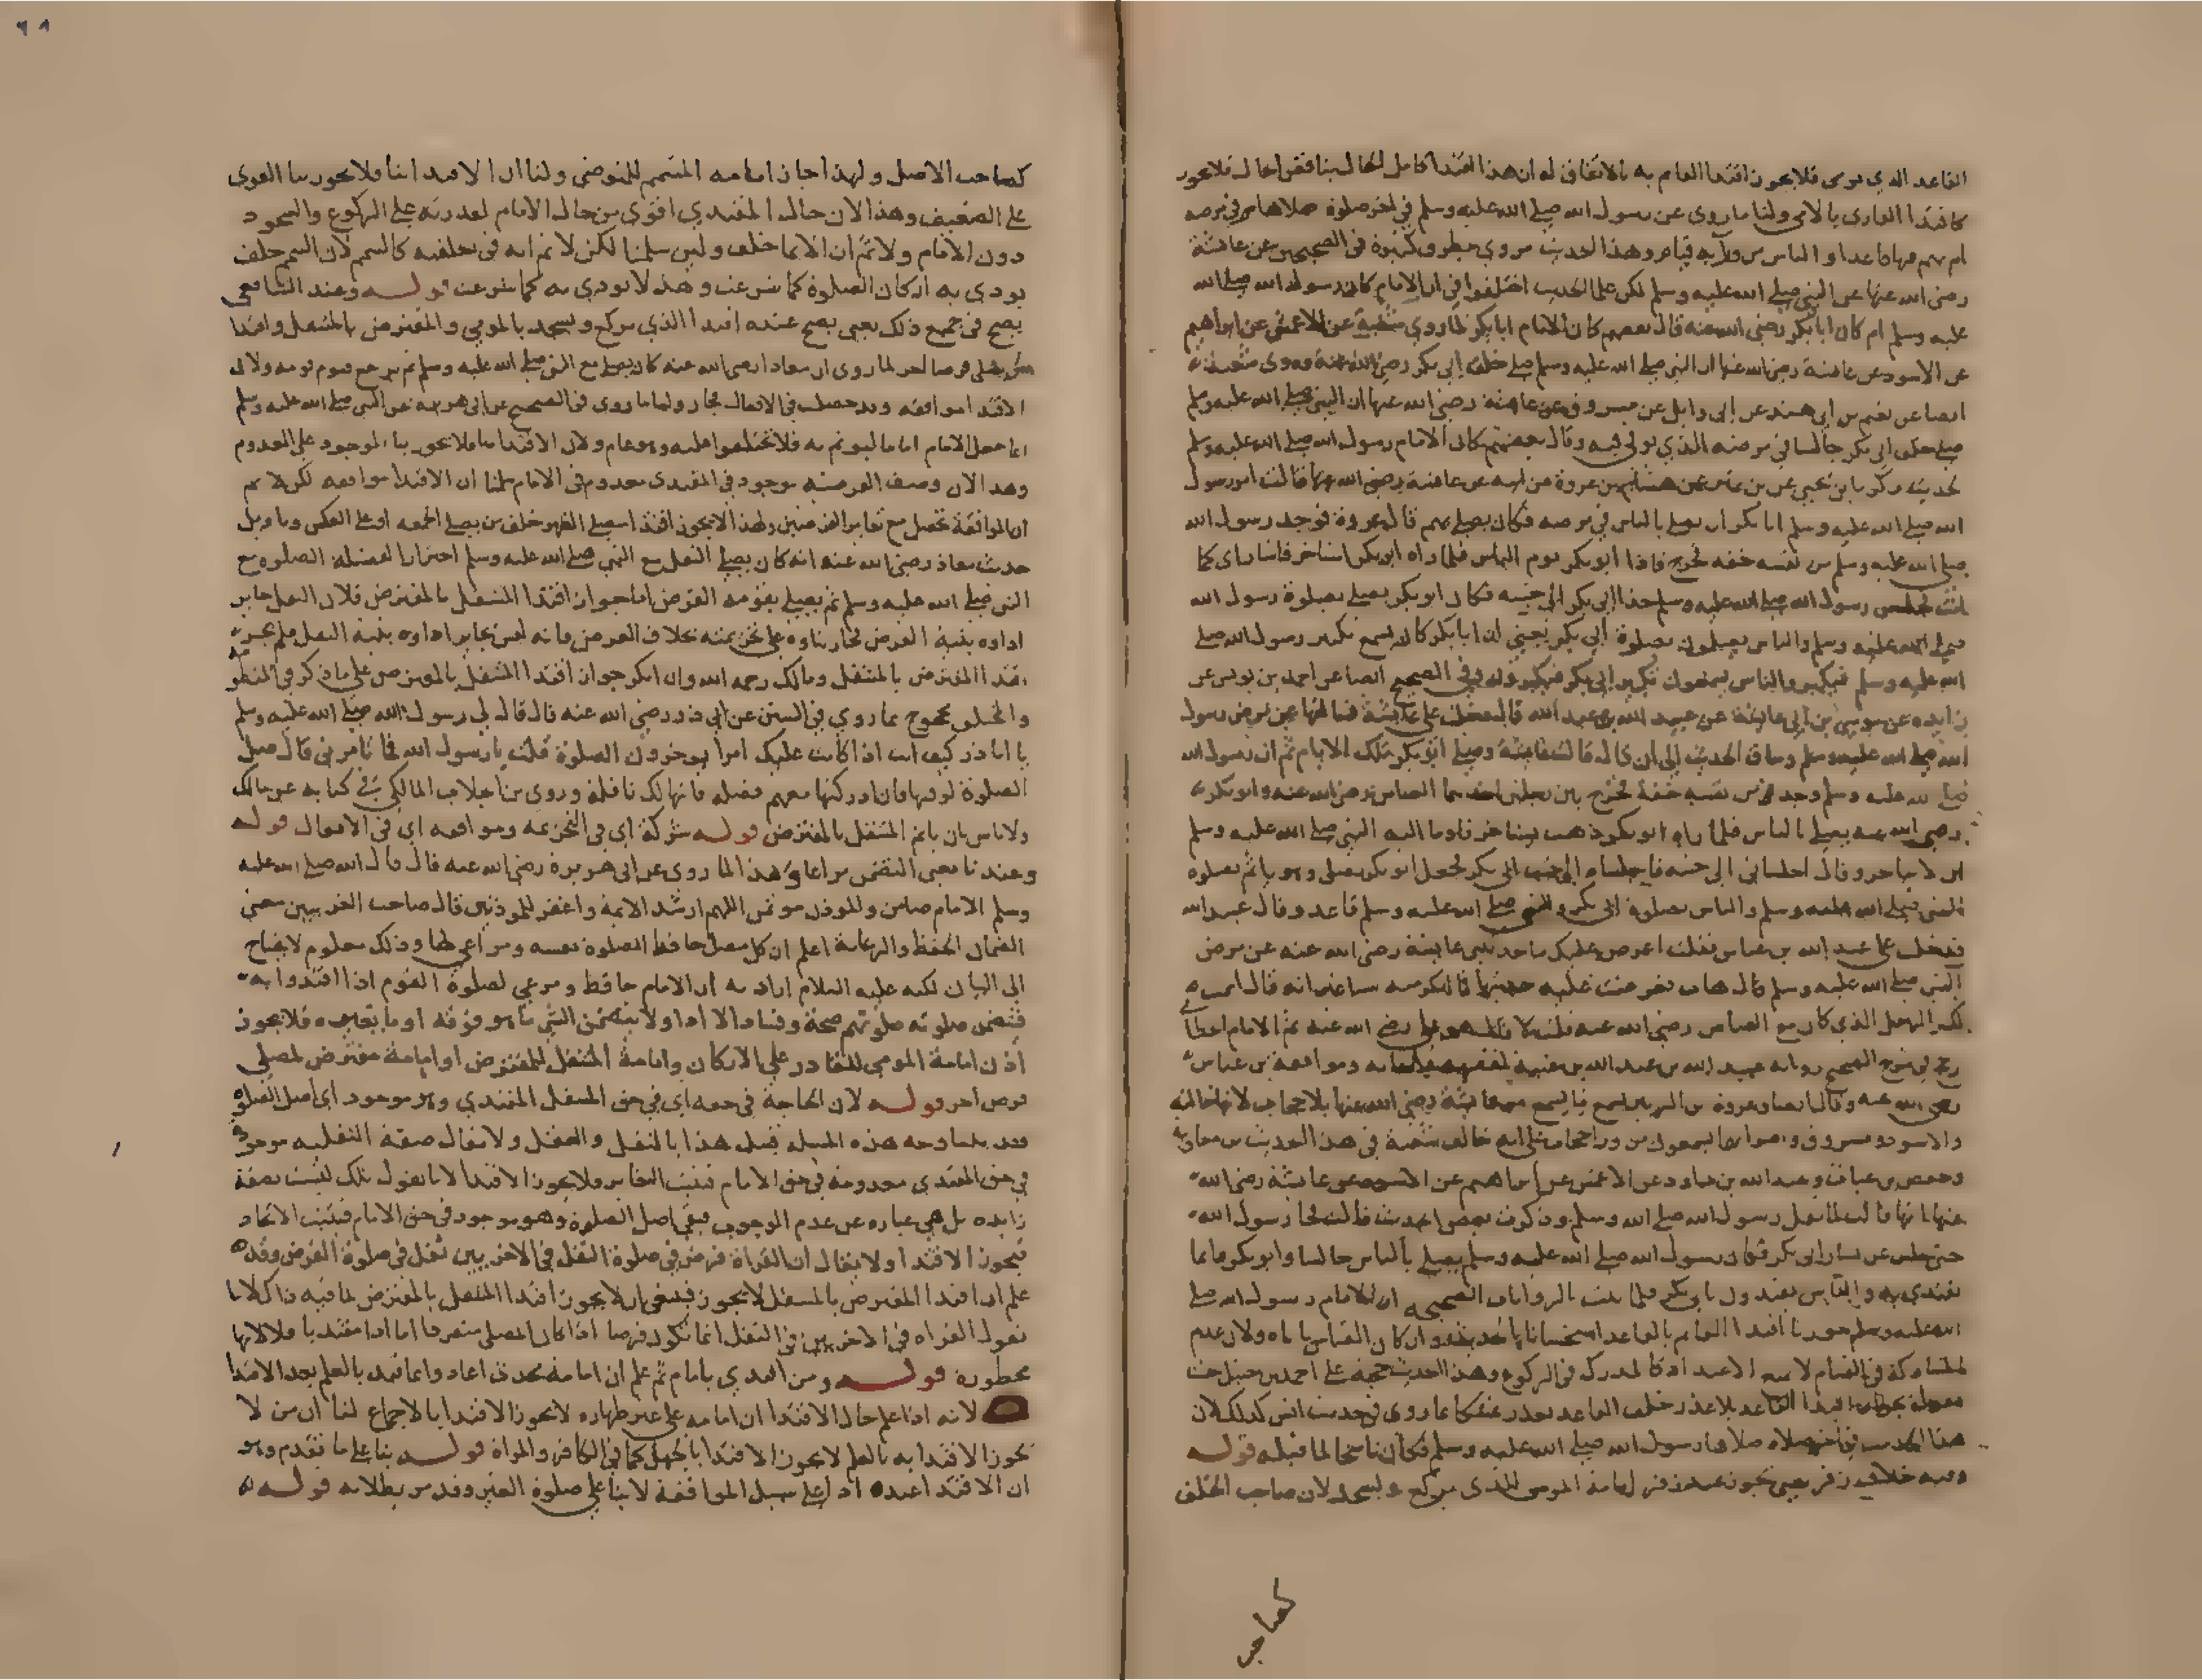 القاعد الذي يومي فلا يجوز اقتدا القائم به بالاتفاق له ان هذا اقتدا كامل الحال بناقص الحال فلا يجوز
كاقتدا القارى بالامي ولنا ما روى عن رسول الله صلى الله عليه وسلم في اخر صلوة صلاها في مرضه
قاعدا والناس من ورآيه قيام وهذا الحديث مروي بطرق كثيرة في الصحيحين عن عائشة
رضى الله عنها عن النبي صلى الله عليه وسلم لكن علما الحديث اختلفوا في ان الامام كان رسول الله صلى الله
عليه وسلم ام كان ابا بكر رضى الله عنه قال بعضهم كان الامام ابا بكر لما روي شعبة عن الاعمش عن ابراهيم
عن الاسود عن عائشة رضى الله عنها ان النبي صلى الله عليه وسلم صلى خلف ابي بكر رضى الله عنه وروى شعبة
ايضا عن نعيم بن ابي هند عن ابي وايل عن مسروق عن عائشة رضى الله عنها ان النبي صلى الله عليه وسلم
صلى خلف ابي بكر جالسا في مرضه الذي توفى فيه وقال بعضهم كان الامام رسول الله صلى الله عليه وسلم
هشام بن عروة عن ابيه عن عائشة رضى الله عنها قالت امر رسول
الله صلى الله عليه وسلم ابا بكر ان يصلى بالناس في مرضه فكان يصلى بهم قال عروة فوجد رسول الله
صلى الله عليه وسلم من نفسه خفة فخرج فاذا ابو بكر يوم الناس فلما راه ابو بكر استاخر فاشار اى كما
انت فجلس رسول الله صلى الله عليه وسلم حذا ابي بكر الى جنبه فكان ابو بكر يصلى بصلوة رسول الله
صلى الله عليه وسلم والناس يصلون بصلوة ابي بكر يعني ان ابا بكر كان يسمع تكبير رسول الله صلى
الله عليه وسلم فيكبر والناس يسمعون تكبير ابي بكر فيكبرون وفي الصحيح ايضا عن احمد بن يونس عن
زايده عن موسى بن ابي عايشة عن عبيد الله بن عبد الله قال دخلت على عايشة فسالتها عن مرض رسول
الله صلى الله عليه وسلم وساق الحديث الى ان قال قالت عايشة وصلى ابو بكر تلك الايام ثم ان رسول الله
صلى الله عليه وسلم وجد من نفسه خفة فخرج بين رجلين احدهما العباس رضى الله عنه وابو بكر
رضى الله عنه يصلى بالناس فلما راه ابو بكر ذهب ليتاخر فاوما اليه النبي صلى الله عليه وسلم
ان لا يتاخر وقال اجلساني الى جنبه فاجلساه الى جنب ابي بكر فجعل ابو بكر يصلى وهو ياتم بصلوة
النبي صلى الله عليه وسلم والناس بصلوة ابي بكر والنبي صلى الله عليه وسلم قاعد وقال عبيد الله
فدخلت على عبد الله بن عباس فقلت اعرض عليك ما حدثتني عايشة رضى الله عنه عن مرض
النبي صلى الله عليه وسلم قال هات فعرضت عليه حديثها فما انكر منه شيا غير انه قال اسمت
لك الرجل الذي كان مع العباس رضى الله عنه قلت لا قال هو على رضى الله عنه
رواية عبيد الله بن عبد الله بن عتبة
رضى الله عنه
والاسود ومسروق
وحفص بن غياث وعبد الله بن داود عن الاعمش عن ابراهيم عن الاسود عن عايشة رضى الله
عنها انها قالت لما ثقل رسول الله صلى الله عليه وسلم وذكرت بعض الحديث قالت فجا رسول الله
حتى جلس عن يسار ابي بكر فكان رسول الله صلى الله عليه وسلم يصلى بالناس جالسا وابو بكر قايما
يقتدى به والناس يقتدون بابي بكر فلما ثبت بالروايات الصحيحه ان الامام رسول الله صلى
الله عليه وسلم جوزنا اقتدا القايم بالقاعد استحسانا وان كان القياس ياباه ولان عدم
المشاركة في القيام كالمدرك في الركوع وهذا الحديث حجة على احمد بن حنبل حيث
اقتدا القاعد بلا عذر خلف القاعد بعذر عملا بما روى في حديث انس كذلك لان
هذا الحديث في اخر صلاه صلاها رسول الله صلى الله عليه وسلم فكان ناسخا لما قبله قوله
وفيه خلاف زفر يعني يجوز عند زفر امامة المومى للذى يركع ويسجد لان صاحب الخلف
كصاحب
٦٨
كصاحب الاصل ولهذا جاز امامه المتيمم للمتوضى ولنا ان الاقتدا بنا فلا يجوز بنا القوى
على الضعيف وهذا لان حال المقتدي اقوى من حال الامام لقدرته على الركوع والسجود
دون الامام ولا نم ان الايما خلف ولين سلمنا لكن لا نم انه في خلفيه كالتيمم لان التيمم خلف
يودى به اركان الصلوة كما شرعت وهذا لا يودى به كما شرعت قوله وعند الشافعي
يصح في جميع ذلك يعني يصح عنده اقتدا الذي يركع ويسجد بالمومي والمفترض بالمتنفل واقتدا
من يصلى فرضا اخر لما روى ان معاذا رضى الله عنه كان يصلى مع النبي صلى الله عليه وسلم ثم يرجع فيوم قومه ولان
الاقتدا موافقه وقد حصلت في الافعال فجاز ولنا ما روى في الصحيح عن ابي هريرة عن النبي صلى الله عليه وسلم
انما جعل الامام اماما ليوتم به فلا تختلفوا عليه وهو عام ولان الاقتدا بنا فلا يجوز بنا الموجود على المعدوم
وهذا لان وصف الفرضية موجود في المقتدى معدوم في الامام قلنا ان الاقتدا موافقه لكن لا نم
ان الموافقة تحصل مع تغاير الفرضين ولهذا لا يجوز اقتدا من يصلى الظهر خلف من يصلى الجمعه او على العكس وتاويل
حديث معاذ رضى الله عنه انه كان يصلى النفل مع النبي صلى الله عليه وسلم احرازا لفضيلة الصلوة مع
النبي صلى الله عليه وسلم ثم يصلى بقومه الفرض اما جواز اقتدا المتنفل بالمفترض فلان النفل جايز
اداوه بنية الفرض فجاز بناوه على تحريمته بخلاف الفرض فانه ليس بجايز اداوه بنية النفل فلم يجز
اقتدا المفترض بالمتنفل ومالك رحمه الله وان انكر جواز اقتدا المتنفل بالمفترض على ما ذكر في المنظومة
محجوج بما روي في السنن عن ابي ذر رضى الله عنه قال قال لي رسول الله صلى الله عليه وسلم
يا ابا ذر كيف انت اذا كانت عليك امرا يوخرون الصلوة قلت يا رسول الله فما تامرني قال صل
الصلوة لوقتها فان ادركتها معهم فصله فانها لك نافلة وروى بن الجلاب المالكي في كتابه عن مالك
ولا باس بان ياتم المتنفل بالمفترض قوله شركة اي في التحريمه وموافقه اي في الافعال قوله
وعندنا معنى التضمن مراعا وهذا لما روى عن ابي هريرة رضى الله عنه قال قال رسول الله صلى الله عليه
وسلم الامام ضامن والموذن موتمن اللهم ارشد الايمة واغفر للموذنين قال صاحب الغريبين معنى
الضمان الحفظ والرعاية اعلم ان كل مصل حافظ لصلوة نفسه ومراعى لها وذلك معلوم لا يحتاج
الى البيان لكنه عليه السلام اراد به ان الامام حافظ ومرعي لصلوة القوم اذا اقتدوا به
فتضمن صلوته صلوتهم صحة وفسادا لا ادا ولا يتضمن الشي ما هو فوقه او ما يغايره فلا يجوز
اذن امامة المومي للقادر على الاركان وامامة المتنفل للمفترض او امامة مفترض لمصلى
فرض اخر قوله لان الحاجة في حقه اي في حق المتنفل المقتدي وهو موجود اى اصل الصلوة
هذه المسلة قبل هذا بالنقل والعقل ولا يقال صفة النفليه موجودة
في حق المقتدي معدومة في حق الامام فثبت التغاير فلا يجوز الاقتدا لانا نقول تلك ليست بصفة
زايده بل هي عباره عن عدم الوجوب فبقى اصل الصلوة وهو موجود في حق الامام فثبت الاتحاد
فيجوز الاقتدا ولا يقال ان القراة فرض في صلوة النفل في الاخريين نفل في صلوة الفرض وقد
علم ان اقتدا المفترض بالمتنفل لا يجوز فينبغى ان لا يجوز اقتدا المتنفل بالمفترض لما فيه ذاك لانا
نقول القراه في الاخريين في النفل انما تكون فرضا اذا كان المصلى منفردا اما اذا اقتدى فلا لانها
محظورة قوله ومن اقتدي بامام ثم علم ان امامه محدث اعاد وانما قيد بالعلم بعد الاقتدا
لانه اذا علم حال الاقتدا ان امامه على غير طهاره لا يجوز الاقتدا بالاجماع لنا ان من لا
يجوز الاقتدا به بالعلم لا يجوز الاقتدا بالجهل كما في الكافر والمراة قوله بنا على ما تقدم وهو
ان الاقتدا عنده ادا على سبيل الموافقة لا بنا على صلوة الغير وقد مر بطلانه قوله